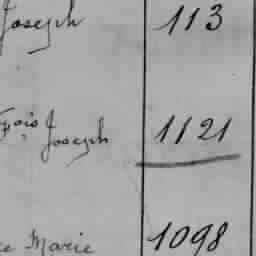 Joseph 113
çois J
Joseph 1121
ce Marie 1098